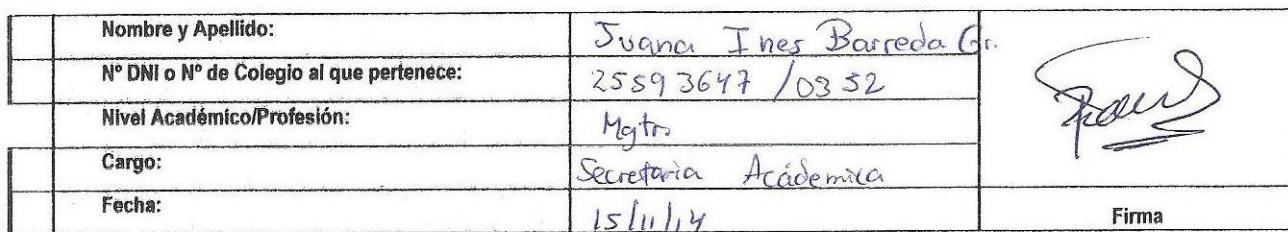 Nombre y Apellido: Juana Ines Barreda Gr.
Nº DNI o Nº de Colegio al que pertenece: 25593647 /0352
Nivel Académico/Profesión: Mgtr.
Cargo: Secretaria Académica
Fecha: 15/11/14
Firma